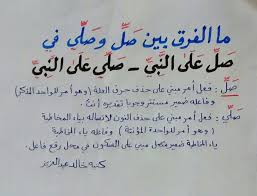 ما الفرق بين صَلِّ وصَلِّي في
صَلِّ عَلَى النَّبِيِّ – صَلِّي عَلَى النَّبِيِّ
صَلِّ : فعل أمر مبني على حذف حرف العلة (وهو أمر للواحد المذكر)
وفاعله ضمير مستتر وجوبا تقديره أنتَ.
صَلِّي : فعل أمر مبني على حذف النون لاتصاله بياء المخاطبة
(وهو أمر للواحدة المؤنثة) وفاعله ياء المخاطبة
ياء المخاطبة ضمير متصل مبني على السكون في محل رفع فاعل.
كتبه خالد عبد العزيز